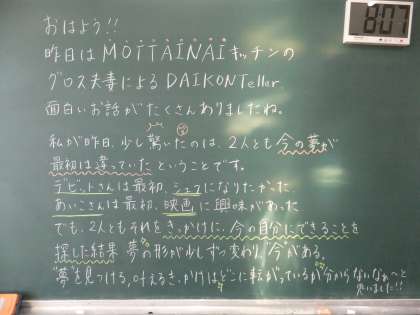 8:07
おはよう!!
昨日はMOTTAINAIキッチンの
グロス夫妻によるDAIKONTeller.
面白いお話がたくさんありましたね。
私が昨日、少し驚いたのは、2人とも今の夢が
最初は違っていたということです。
デビットさんは最初、シェフになりたかった。
あいこさんは最初、映画に興味があった
でも、2人ともそれをきっかけに、今の自分にできることを
探した結果 夢の形が少しずつ変わり、"今"がある。
"夢"を見つける、叶えるきっかけはどこに転がっているか分からないなぁ〜と
思いました!!